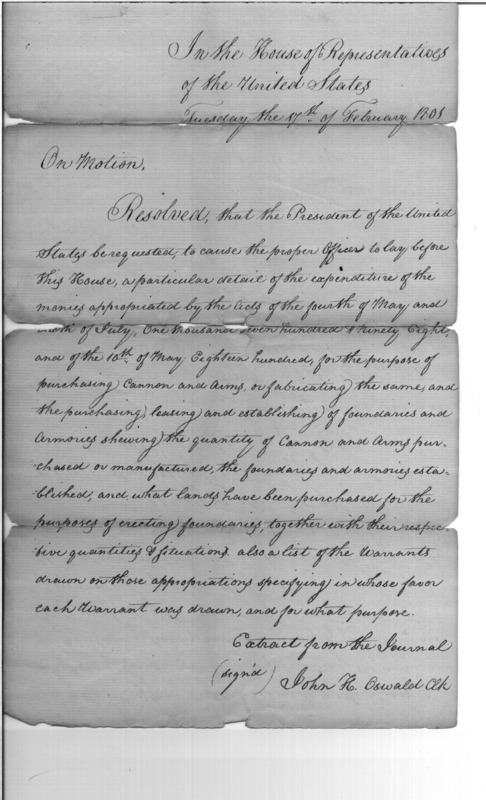 In the House of Representatives
of the United States
Tuesday the 17th of February 1801
On Motion,
Resolved, that the President of the United
States be requested, to cause the proper Officer to lay before
this House, a particular detail of the expenditure of the
monies appropriated by the Acts of the fourth of May and
sixth of July, One thousand seven hundred & Ninety Eight,
and of the 10th of May Eighteen hundred, for the purpose of
purchasing Cannon and Arms, or fabricating the same, and
the purchasing, leasing and establishing of foundaries and
Armories shewing the quantity of Cannon and Arms pur-
chased or manufactured, the foundaries and armories esta-
blished, and what lands have been purchased for the
purposes of erecting foundaries, together with their respec-
tive quantities & situations. also a list of the Warrants
drawn on those appropriations specifying in whose favor
each Warrant was drawn, and for what purpose.
Extract from the Journal
(sign'd) John H. Oswald Clk